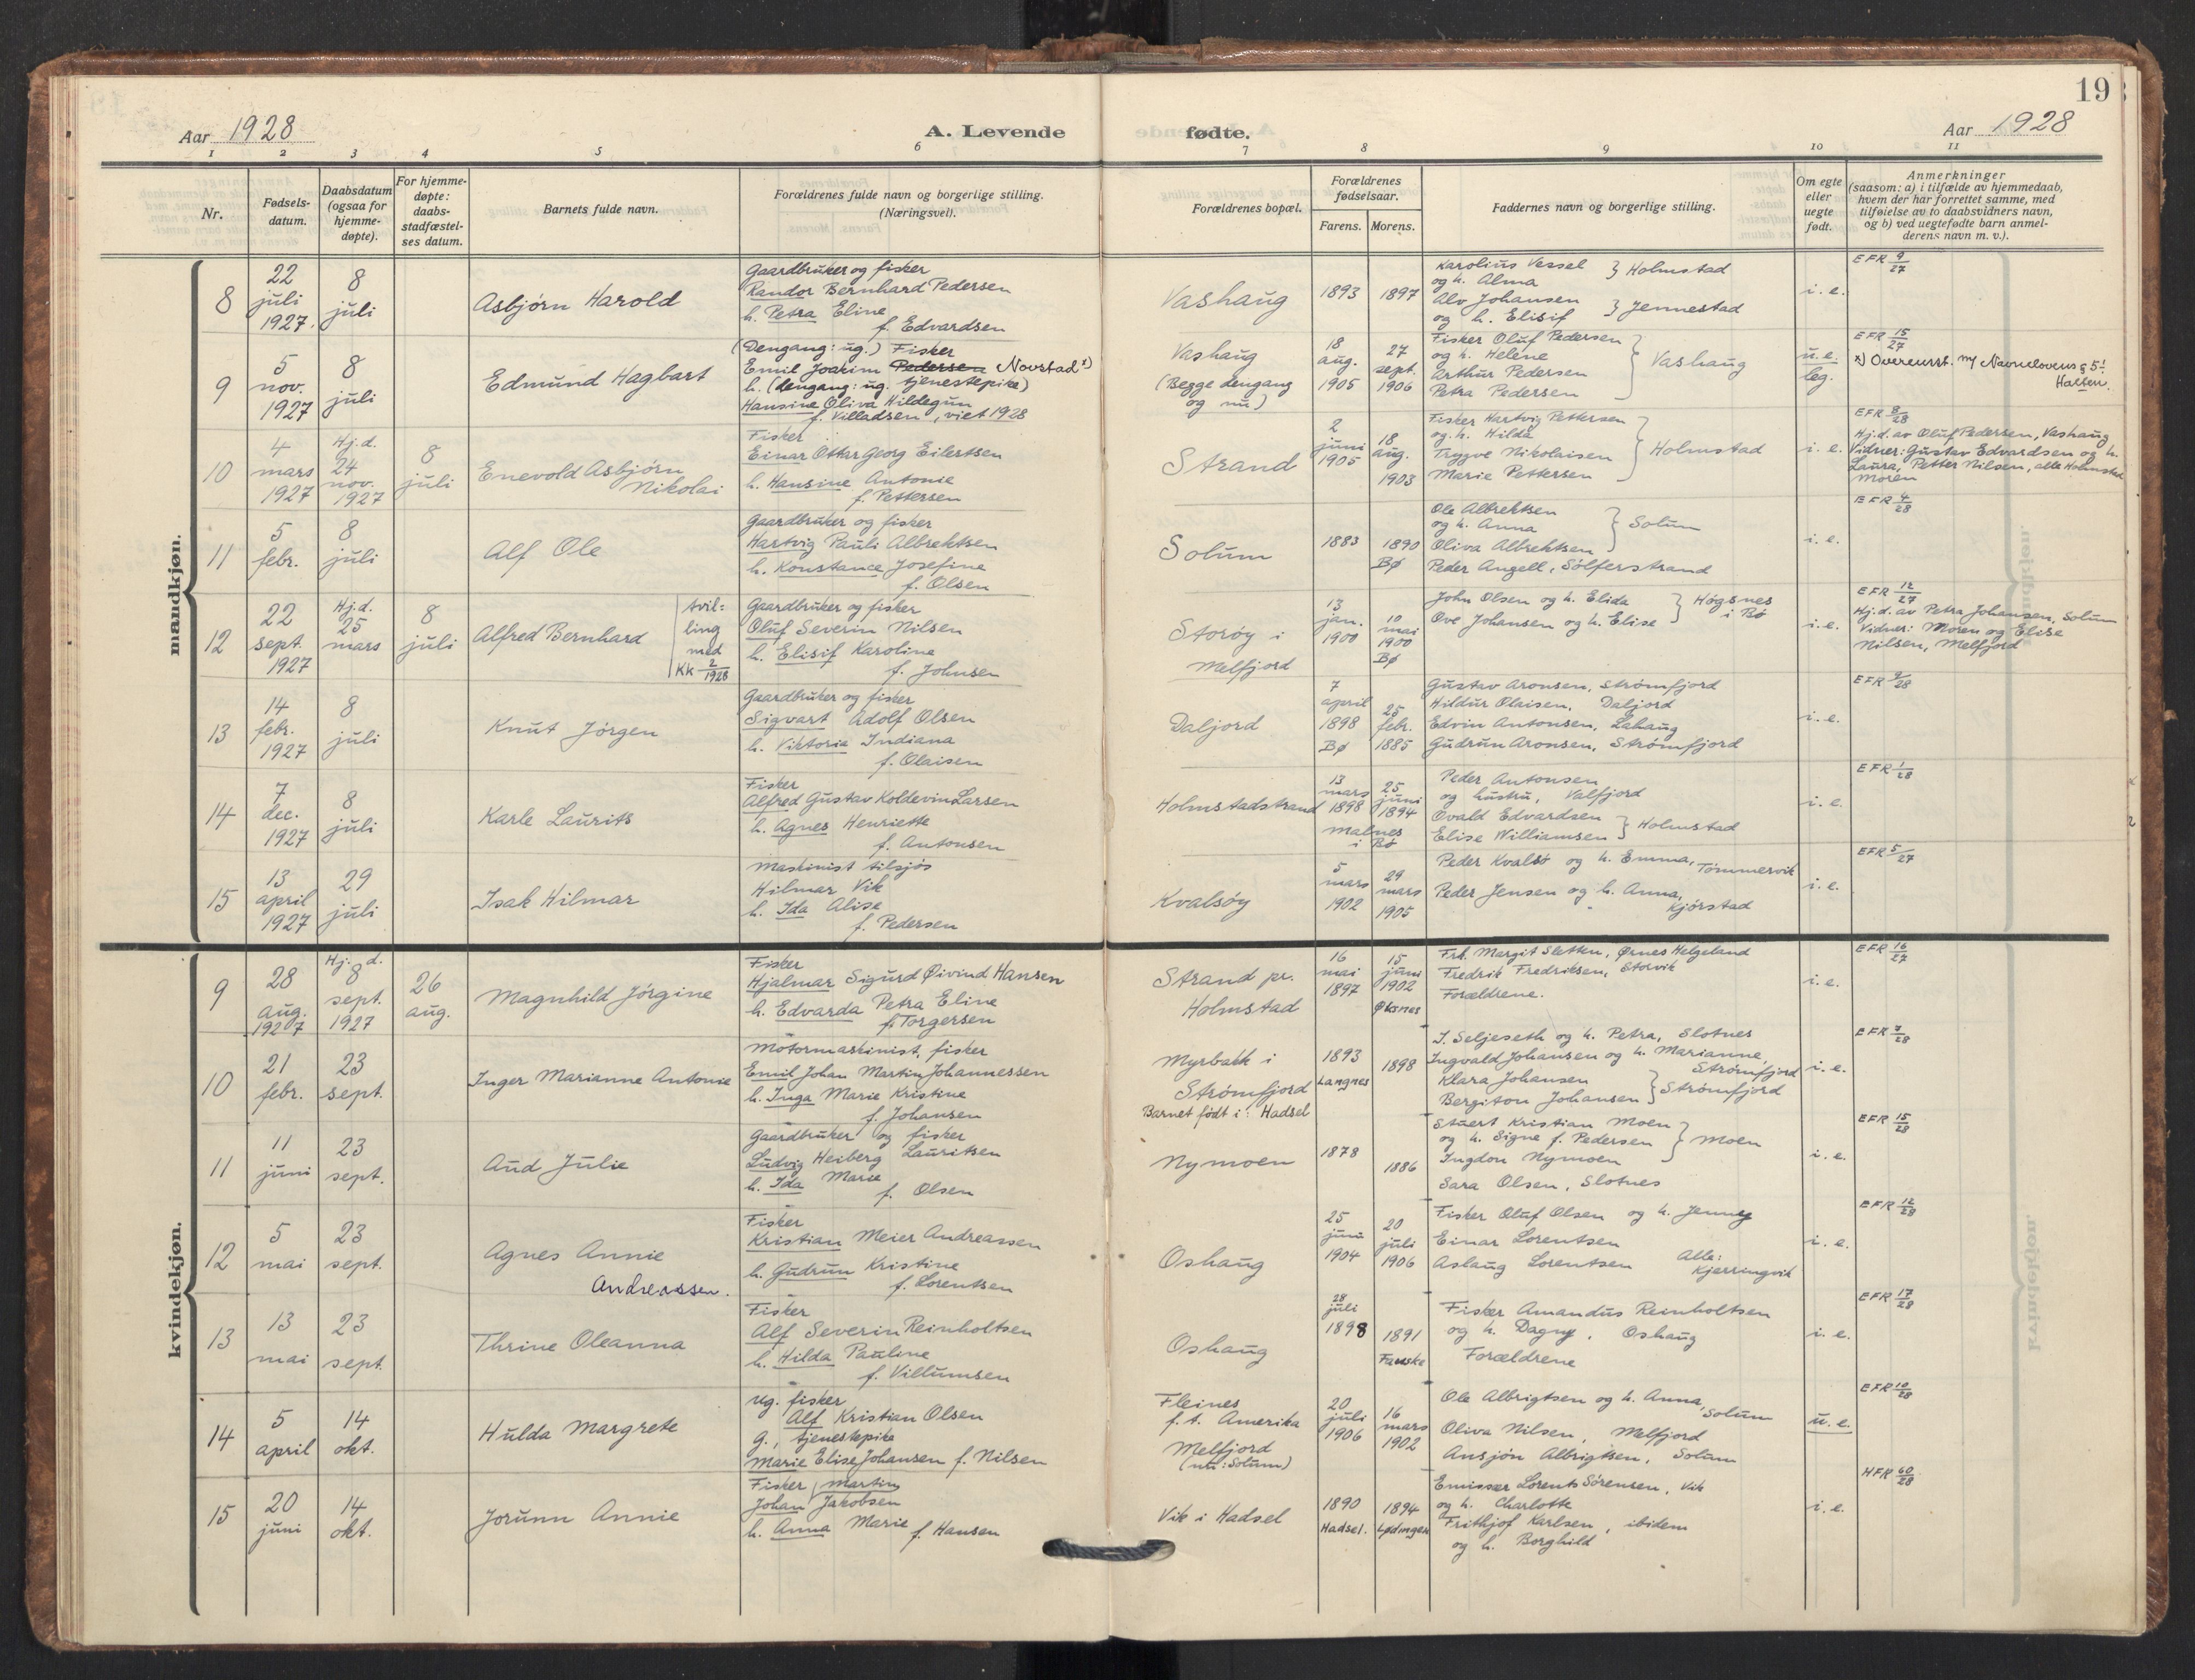 19
Aar 1928
A. Levende fødte.
Aar 1928
1 2 3 4 5 6 7 8 9 10 11
Nr.
Fødsels-
datum.
Daabsdatum
(ogsaa for
hjemme-
døpte).
For hjemme-
døpte:
daabs-
stadfæstel-
ses datum.
Barnets fulde navn.
Forældrenes fulde navn og borgerlige stilling.
(Næringsvei).
Forældrenes bopæl.
Forældrenes
fødselsaar.
Farens. Morens.
Faddernes navn og borgerlige stilling.
Om egte
eller
uegte
født.
Anmerkninger
(saasom: a) i tilfælde av hjemmedaab,
hvem der har forrettet samme, med
tilføielse av to daabsvidners navn,
og b) ved uegtefødte barn anmel-
derens navn m. v.).
mandkjøn.
8
22
juli
1927.
8
juli
Asbjørn Harold
Gaardbruker og fisker
Randor Bernhard Pedersen
h. Petra Eline
f. Edvardsen
Vashaug
1893
1897
Karolius Vessel } Holmstad
og h. Alma
Alv Johansen } Jennestad
og h. Elisif
i. e.
EFR 9/27
9
5
nov.
1927
8
juli
Edmund Hagbart
(Dengang: ug.) Fisker
Emil Joakim Pedersen Novstad x)
h. (dengang: ug. tjenestepike)
Hansine Oliva Hildegun
f. Villadsen, viet 1928
Vashaug
(Begge dengang
og nu)
18
aug.
1905
27
sept.
1906
Fisker Oluf Pedersen
og h. Helene
Arthur Pedersen } Vashaug
Petra Pedersen
u. e.
leg.
EFR 15/27
x) Overensst. m/ Navnelovens § 5!
Halsen.
10
4
mars
1927
Hj.d.
24
nov.
1927
8
juli
Enevold Asbjørn
Nikolai
Fisker
Einar Ottar Georg Eilertsen
h. Hansine Antonie
f. Pettersen
Strand
2
juni
1905
18
aug.
1903
Fisker Hartvig Pettersen
og h. Hilda
Trygve Nikolaisen } Holmstad
Marie Pettersen
i. e.
EFR 8/28
Hj.d. av Oluf Pedersen, Vashaug
Vidner: Gustav Edvardsen og h.
Laura, Petter Nilsen, alle Holmstad
Moren
11
5
febr.
8
juli
Alf Ole
Gaardbruker og fisker
Hartvig Pauli Albrektsen
h. Konstance Josefine
f. Olsen
Solum
1883
1890
Bø
Ole Albrektsen
og h. Anna } Solum
Oliva Albrektsen
Peder Angell, Sølferstrand
i. e.
EFR 4/28
12
22
sept.
1927
Hj.d.
25
mars
8
juli
Alfred Bernhard
tvil=
ling
med
Kk 2/1928
Gaardbruker og fisker
Oluf Severin Nilsen
h. Elisif Karoline
f. Johnsen
Storøy i
Melfjord
13
jan.
1900
10
mai
1900
Bø
John Olsen og h. Elida } Høgsnes
Ove Johansen og h. Elise i Bø
i. e.
EFR 12/27
Hj.d. av Petra Johansen, Solum
Vidner: Moren og Elise
Nilsen, Melfjord
13
14
febr.
1927
8
juli
Knut Jørgen
Gaardbruker og fisker
Sigvart Adolf Olsen
h. Viktoria Indiana
f. Olaisen
Daljord
7
april
1898
Bø
25
febr.
1885
Gustav Aronsen, Strømfjord
Hildur Olaisen, Daljord
Edvin Antonsen, Lahaug
Gudrun Aronsen, Strømfjord
i. e.
EFR 9/28
14
7
dec.
1927
8
juli
Karle Laurits
Fisker
Alfred Gustav Koldevin Larsen
h. Agnes Henriette
f. Antonsen
Holmstadstrand
13
mars
1898
25
juni
1894
Malnes
i Bø
Peder Antonsen
og hustru, Valfjord
Ovald Edvardsen } Holmstad
Elise Williamsen
i. e.
EFR 1/28
15
13
april
1927
29
juli
Isak Hilmar
Maskinist tilsjøs
Hilmar Vik
h. Ida Alise
f. Pedersen
Kvalsøy
5
mars
1902
29
mars
1905
Peder Kvalsø og h. Emma, Tømmervik
Peder Jensen og h. Anna,
Kjørstad
i. e.
EFR 5/27
kvindekjøn.
9
28
aug.
1927
Hj. d.
8
sept.
1927
26
aug.
Magnhild Jørgine
Fisker
Hjalmar Sigurd Øivind Hansen
h. Edvarda Petra Eline
f. Torgersen
Strand pr.
Holmstad
16
mai
1897
15
juni
1902
Øksnes
Frk. Margit Sletten, Ørnes Helgeland
Fredrik Fredriksen, Storvik
Forældrene.
i. e.
EFR 16/27
10
21
febr.
23
sept.
Inger Marianne Antonie
Motormaskinist, fisker
Emil Johan Martin Johannessen
h. Inga Marie Kristine
f. Johansen
Myrbakk i
Strømfjord
Barnet født i: Hadsel
1893
Langnes
1898
I. Seljeseth og h. Petra, Slotnes
Ingvald Johansen og h. Marianne,
Strømfjord
Klara Johansen } Strømfjord
Bergiton Johansen
i. e.
EFR 7/28
11
11
juni
23
sept.
Aud Julie
Gaardbruker og fisker
Ludvig Heiberg Lauritsen
h. Ida Marie
f. Olsen
Nymoen
1878
1886
Stuert Kristian Moen
og h. Signe f. Pedersen } Moen
Ingdon Nymoen
Sara Olsen, Slotnes
i. e.
EFR 15/28
12
5
mai
23
sept.
Agnes Annie
Andreassen.
Fisker
Kristian Meier Andreassen
h. Gudrun Kristine
f. Lorentsen
Oshaug
25
juni
1904
20
juli
1906
Fisker Oluf Olsen og h. Jenny
Einar Lorentsen
Aslaug Lorentsen Alle:
Kjerringvik
i. e.
EFR 12/28
13
13
mai
23
sept.
Thrine Oleanna
Fisker
Alf Severin Reinholtsen
h. Hilda Pauline
f. Villumsen
Oshaug
28
juli
1898
1891
Fauske
Fisker Amandus Reinholtsen
og h. Dagny, Oshaug
Forældrene
i. e.
EFR 17/28
14
5
april
14
okt.
Hulda Margrete
ug. fisker
Alf Kristian Olsen
g., tjenestepike
Marie Elise Johansen f. Nilsen
Fleines
f. t. Amerika
Melfjord
(nu: Solum)
20
juli
1906
16
mars
1902
Ole Albrigtsen og h. Anna, Solum
Oliva Nilsen, Melfjord
Ansjøn Albrigtsen, Solum
u. e.
EFR 10/28
15
20
juni
14
okt.
Jorunn Annie
Fisker Martin
Johan Jakobsen
h. Anna Marie
f. Hansen
Vik i Hadsel
1890
Hadsel.
1894
Lødingen
Emissær Lorents Sørensen, Vik
og h. Charlotte
Frithjof Karlsen, ibidem
og h. Borghild
i. e.
HFR 60/28